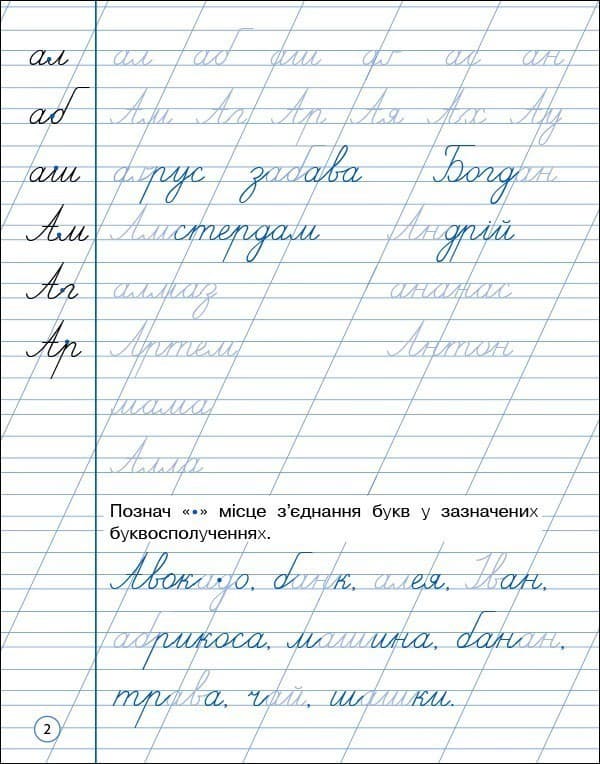 ал ал аб аш аг ас ан
аб Ам Аг Ар Ая Ах Ау
аш аґрус забава Богдан
Ам Амстердам Андрій
Аг алмаз ананас
Ар Артем Антон
мама
Алла
Познач «•» місце з'єднання букв у зазначених
буквосполученнях.
Авокадо, банк, алея, Іван,
абрикоса, машина, банан,
трава, чай, шашки.
2